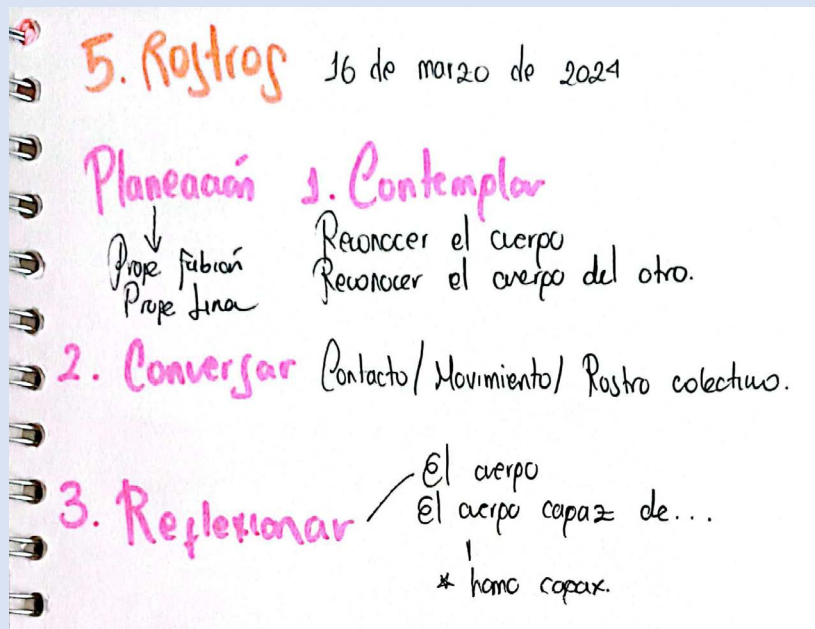 5. Rostros 16 de marzo de 2024
Planeación 1. Contemplar
Profe Fabián
Profe Lina
Reconocer el cuerpo
Reconocer el cuerpo del otro.
2. Conversar Contacto/ Movimiento/ Rostro colectivo.
3. Reflexionar
El cuerpo
El cuerpo capaz de...
* homo capax.